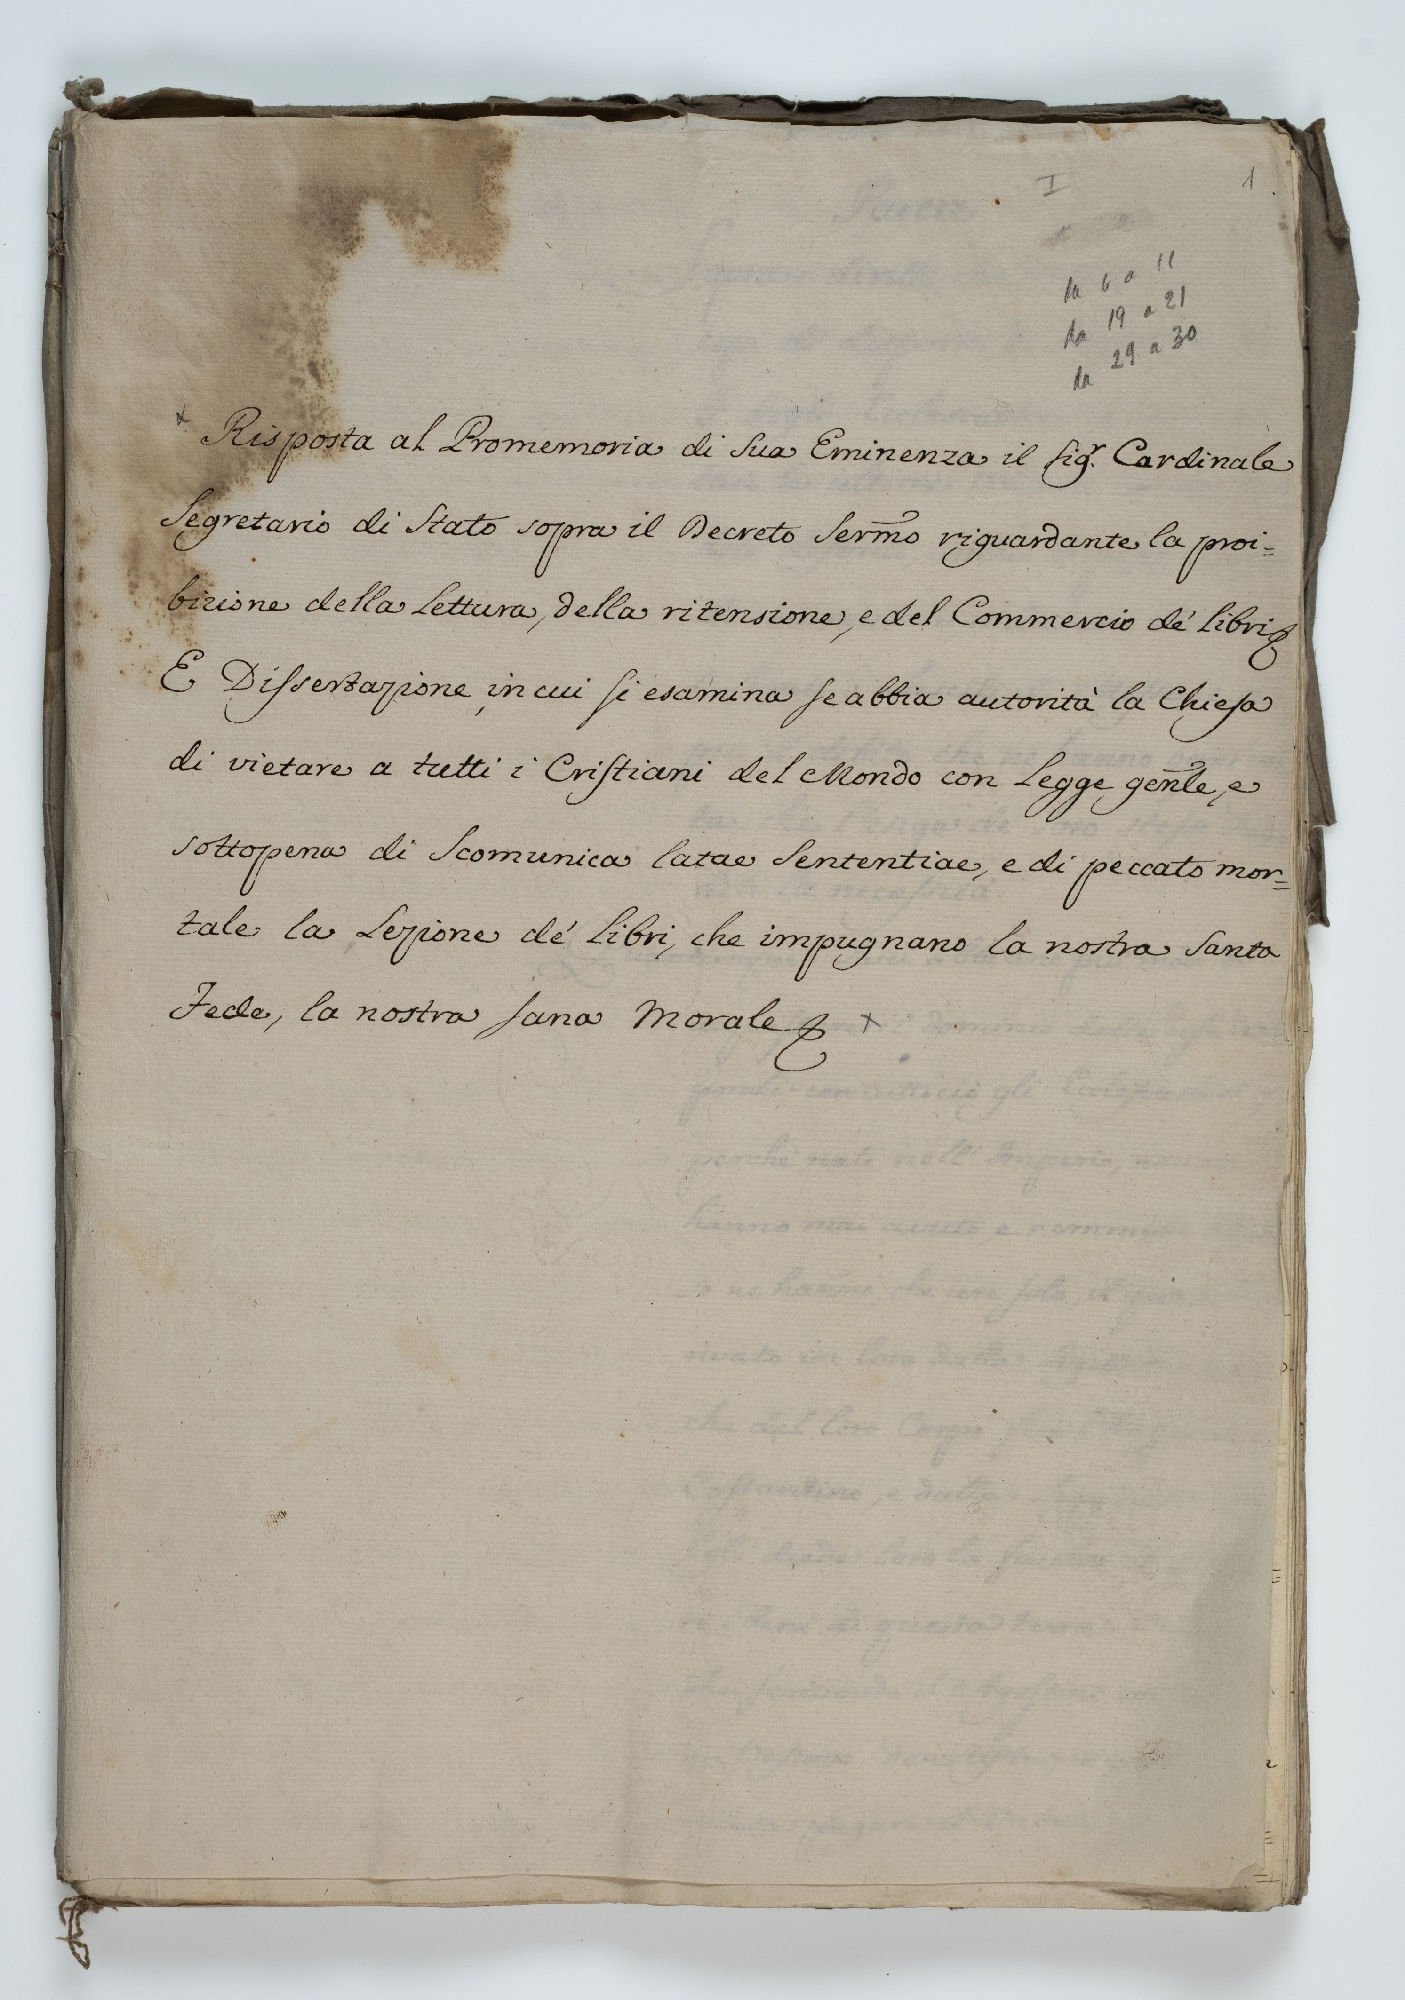 I
1
da 6 a 11
da 19 a 21
da 29 a 30
x Risposta al Promemoria di Sua Eminenza il Sigr. Cardinale
Segretario di Stato sopra il Decreto Sermo riguardante la proi=
bizione della Lettura, della ritensione, e del Commercio de' libri
E Dissertazione, in cui si esamina se abbia autorità la Chiesa
di vietare a tutti i Cristiani del Mondo con Legge genle, e
sottopena di Scomunica latae Sententiae, e di peccato mor=
tale la Lezione de' Libri, che impugnano la nostra Santa
Fede, la nostra sana Morale x